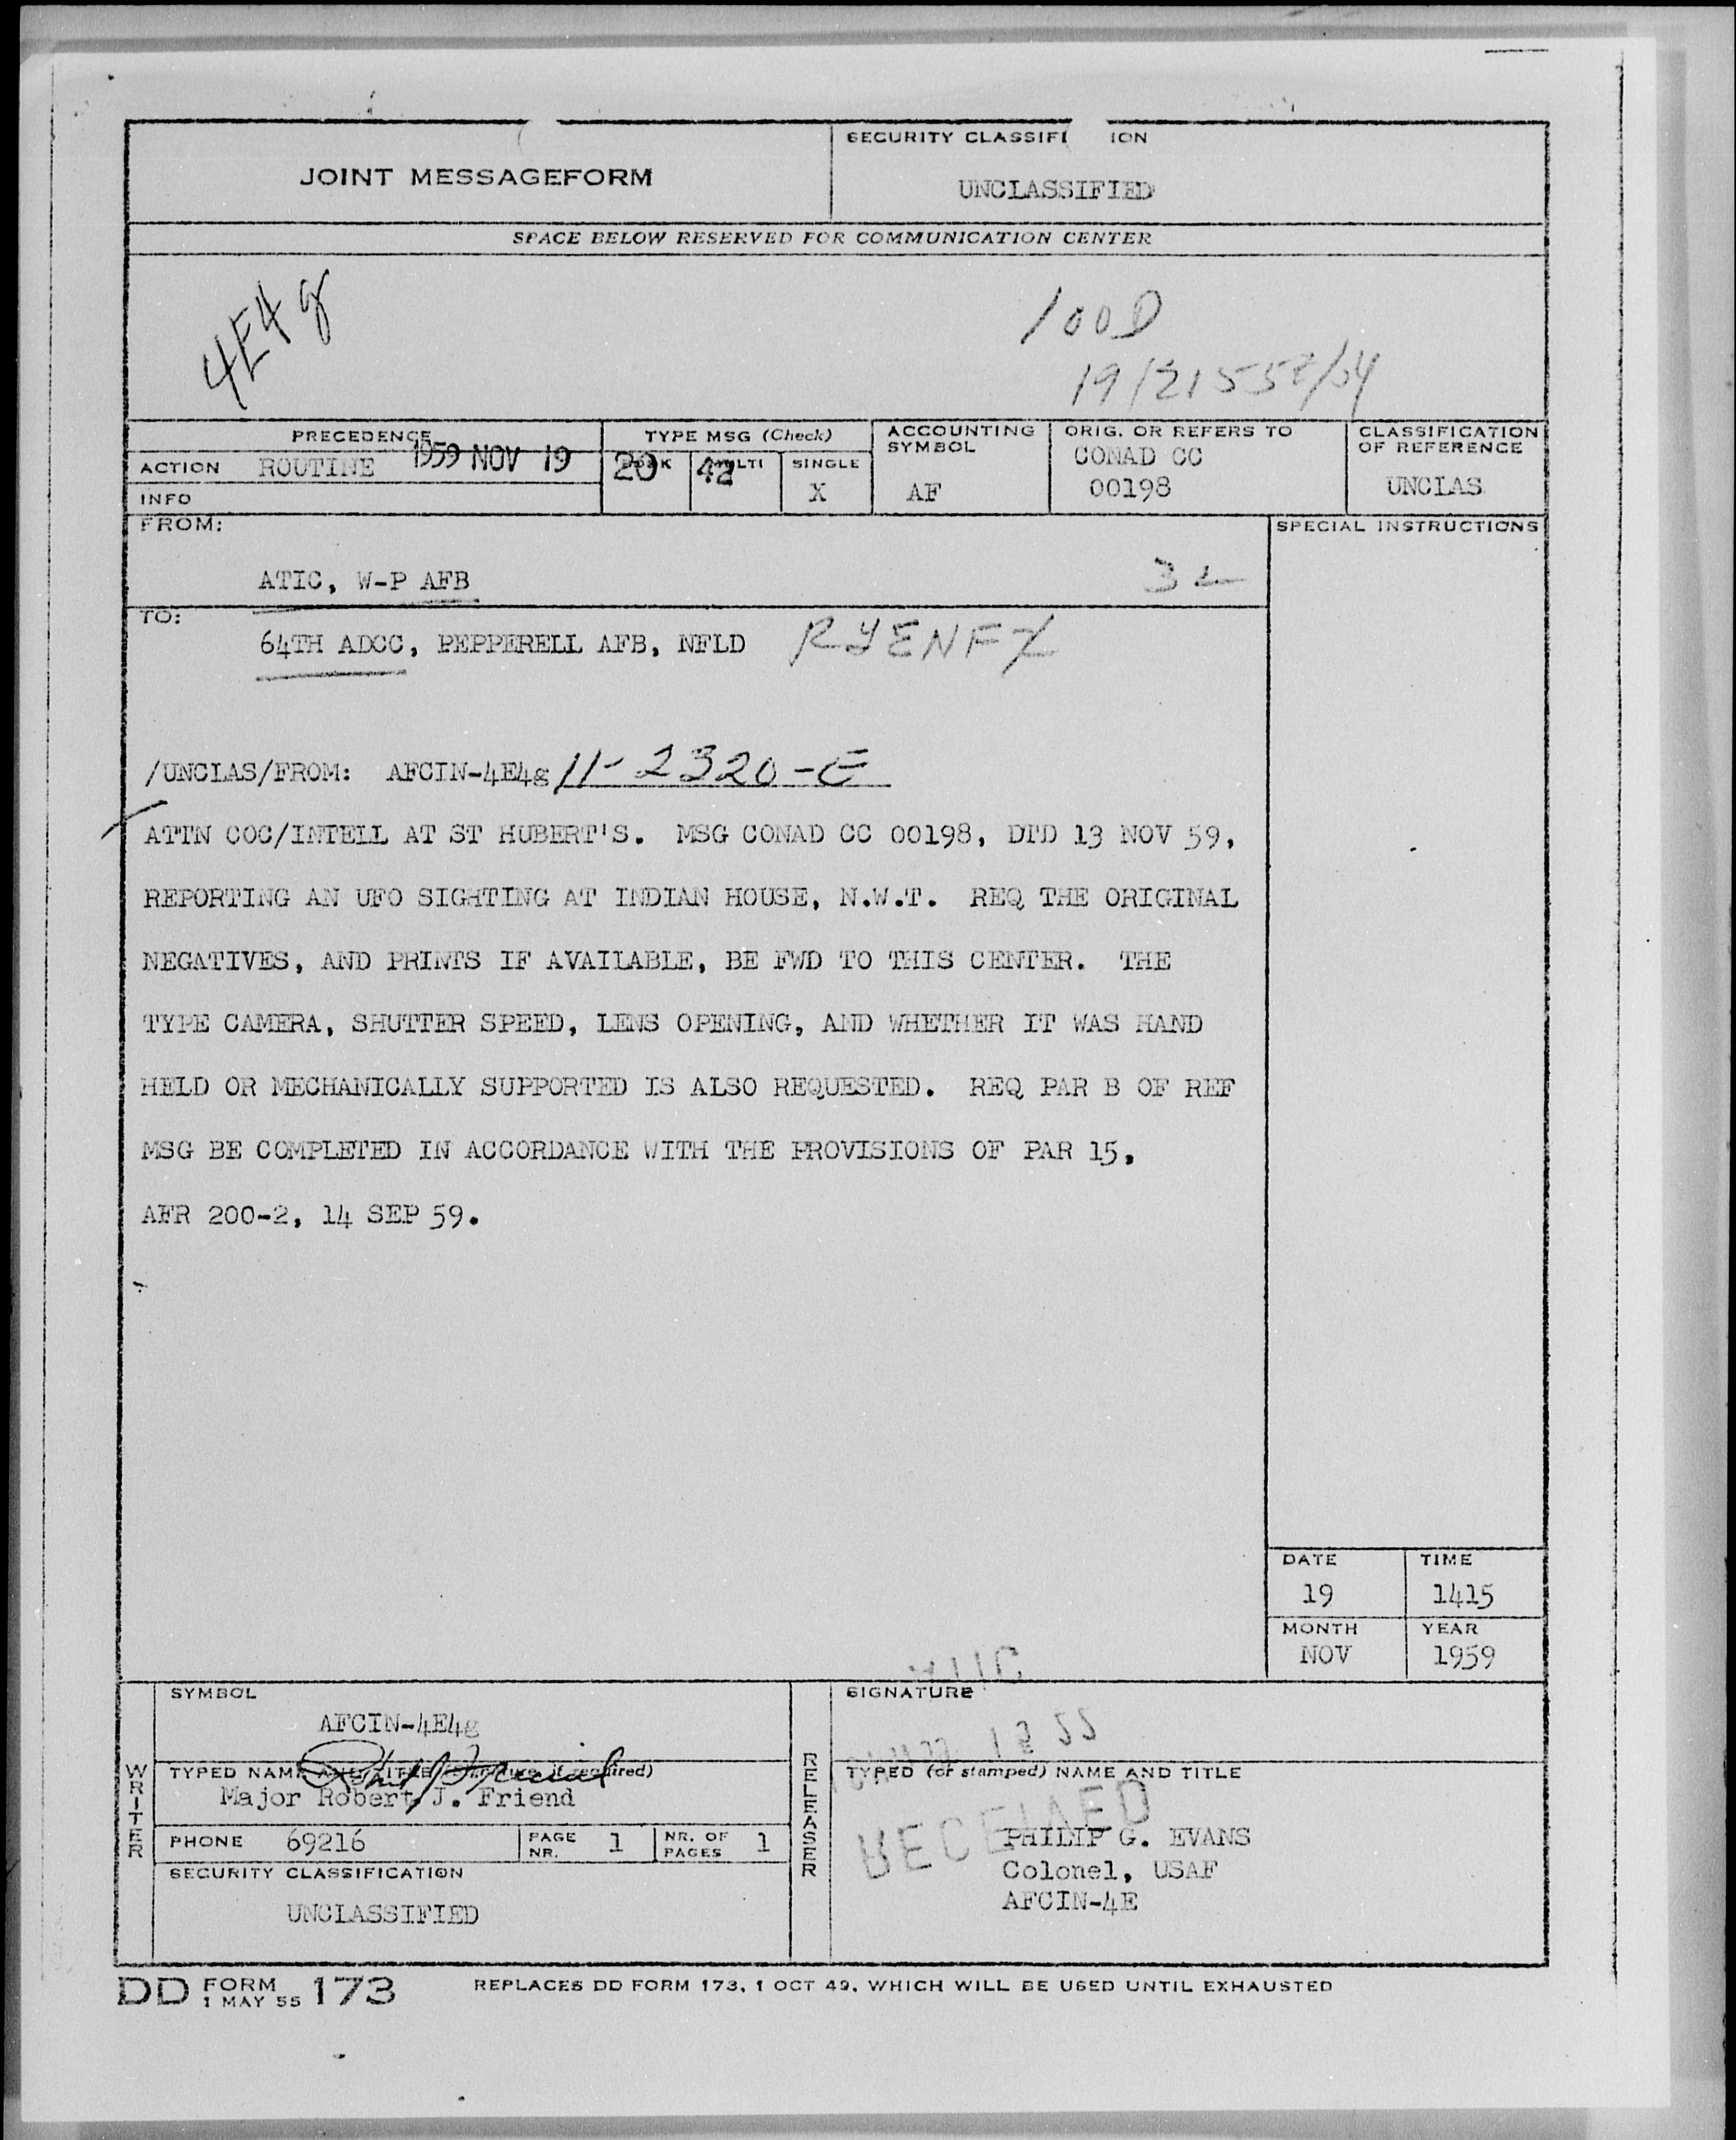 SECURITY CLASSIFI ION
JOINT MESSAGEFORM
UNCLASSIFIED
SPACE BELOW RESERVED FOR COMMUNICATION CENTER
4E4g
100D
19/2155Z/64
PRECEDENCE
TYPE MSG (Check)
ACCOUNTING SYMBOL
ORIG. OR REFERS TO
CLASSIFICATION OF REFERENCE
ACTION ROUTINE 1959 NOV 19 20 42
MULTI
SINGLE
X
AF
CONAD CC
00198
UNCLAS
INFO
FROM:
SPECIAL INSTRUCTIONS
ATIC, W-P AFB
TO:
64TH ADCC, PEPPERELL AFB, NFLD RJENFZ
/UNCLAS/FROM: AFCIN-4E4g 11-2320-E
ATTN COC/INTELL AT ST HUBERT'S. MSG CONAD CC 00198, DTD 13 NOV 59,
REPORTING AN UFO SIGHTING AT INDIAN HOUSE, N.W.T. REQ THE ORIGINAL
NEGATIVES, AND PRINTS IF AVAILABLE, BE FWD TO THIS CENTER. THE
TYPE CAMERA, SHUTTER SPEED, LENS OPENING, AND WHETHER IT WAS HAND
HELD OR MECHANICALLY SUPPORTED IS ALSO REQUESTED. REQ PAR B OF REF
MSG BE COMPLETED IN ACCORDANCE WITH THE PROVISIONS OF PAR 15,
AFR 200-2, 14 SEP 59.
DATE
TIME
19
1415
MONTH
YEAR
NOV
1959
WRITER
SYMBOL
AFCIN-4E4g
TYPED NAME AND TITLE (Signature, if required)
Major Robert J. Friend
PHONE 69216
PAGE NR. 1
NR. OF PAGES 1
SECURITY CLASSIFICATION
UNCLASSIFIED
RELEASER
ATIC
SIGNATURE
TYPED (or stamped) NAME AND TITLE
RECEIVED
PHILIP G. EVANS
Colonel, USAF
AFCIN-4E
DD FORM 1 MAY 55 173
REPLACES DD FORM 173, 1 OCT 49, WHICH WILL BE USED UNTIL EXHAUSTED